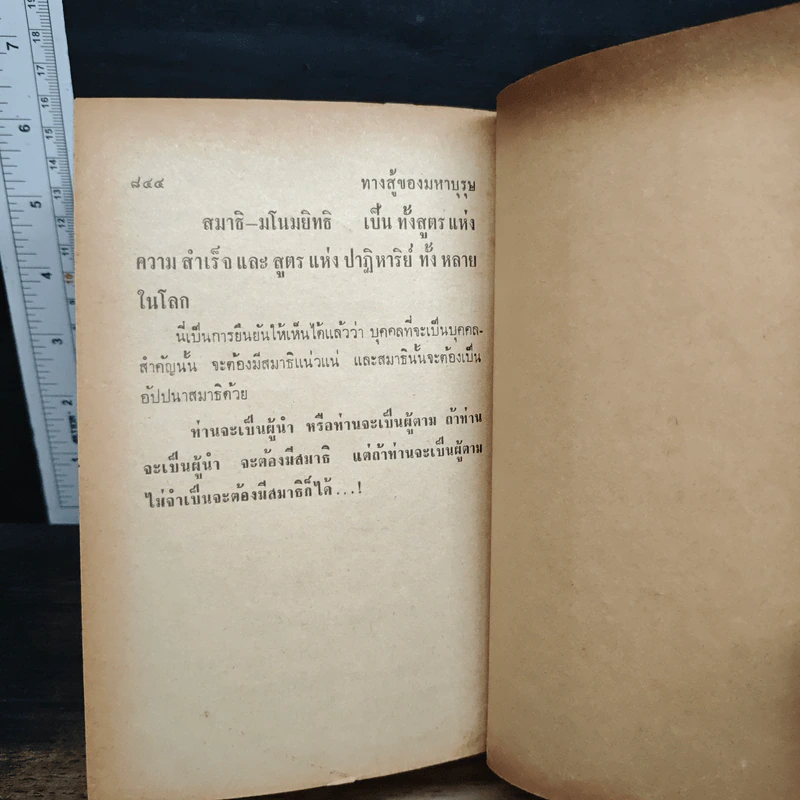 ๘๔๔ ทางสู้ของมหาบุรุษ
สมาธิ–มโนมยิทธิ เป็น ทั้งสูตร แห่ง
ความ สำเร็จ และ สูตร แห่ง ปาฏิหาริย์ ทั้ง หลาย
ในโลก
นี่เป็นการยืนยันให้เห็นได้แล้วว่า บุคคลที่จะเป็นบุคคล-
สำคัญนั้น จะต้องมีสมาธิแน่วแน่ และสมาธินั้นจะต้องเป็น
อัปปนาสมาธิด้วย
ท่านจะเป็นผู้นำ หรือท่านจะเป็นผู้ตาม ถ้าท่าน
จะเป็นผู้นำ จะต้องมีสมาธิ แต่ถ้าท่านจะเป็นผู้ตาม
ไม่จำเป็นจะต้องมีสมาธิก็ได้ ...!
7
6
5
4
3
2
19
18
17
16
15
14
13
12
11
10